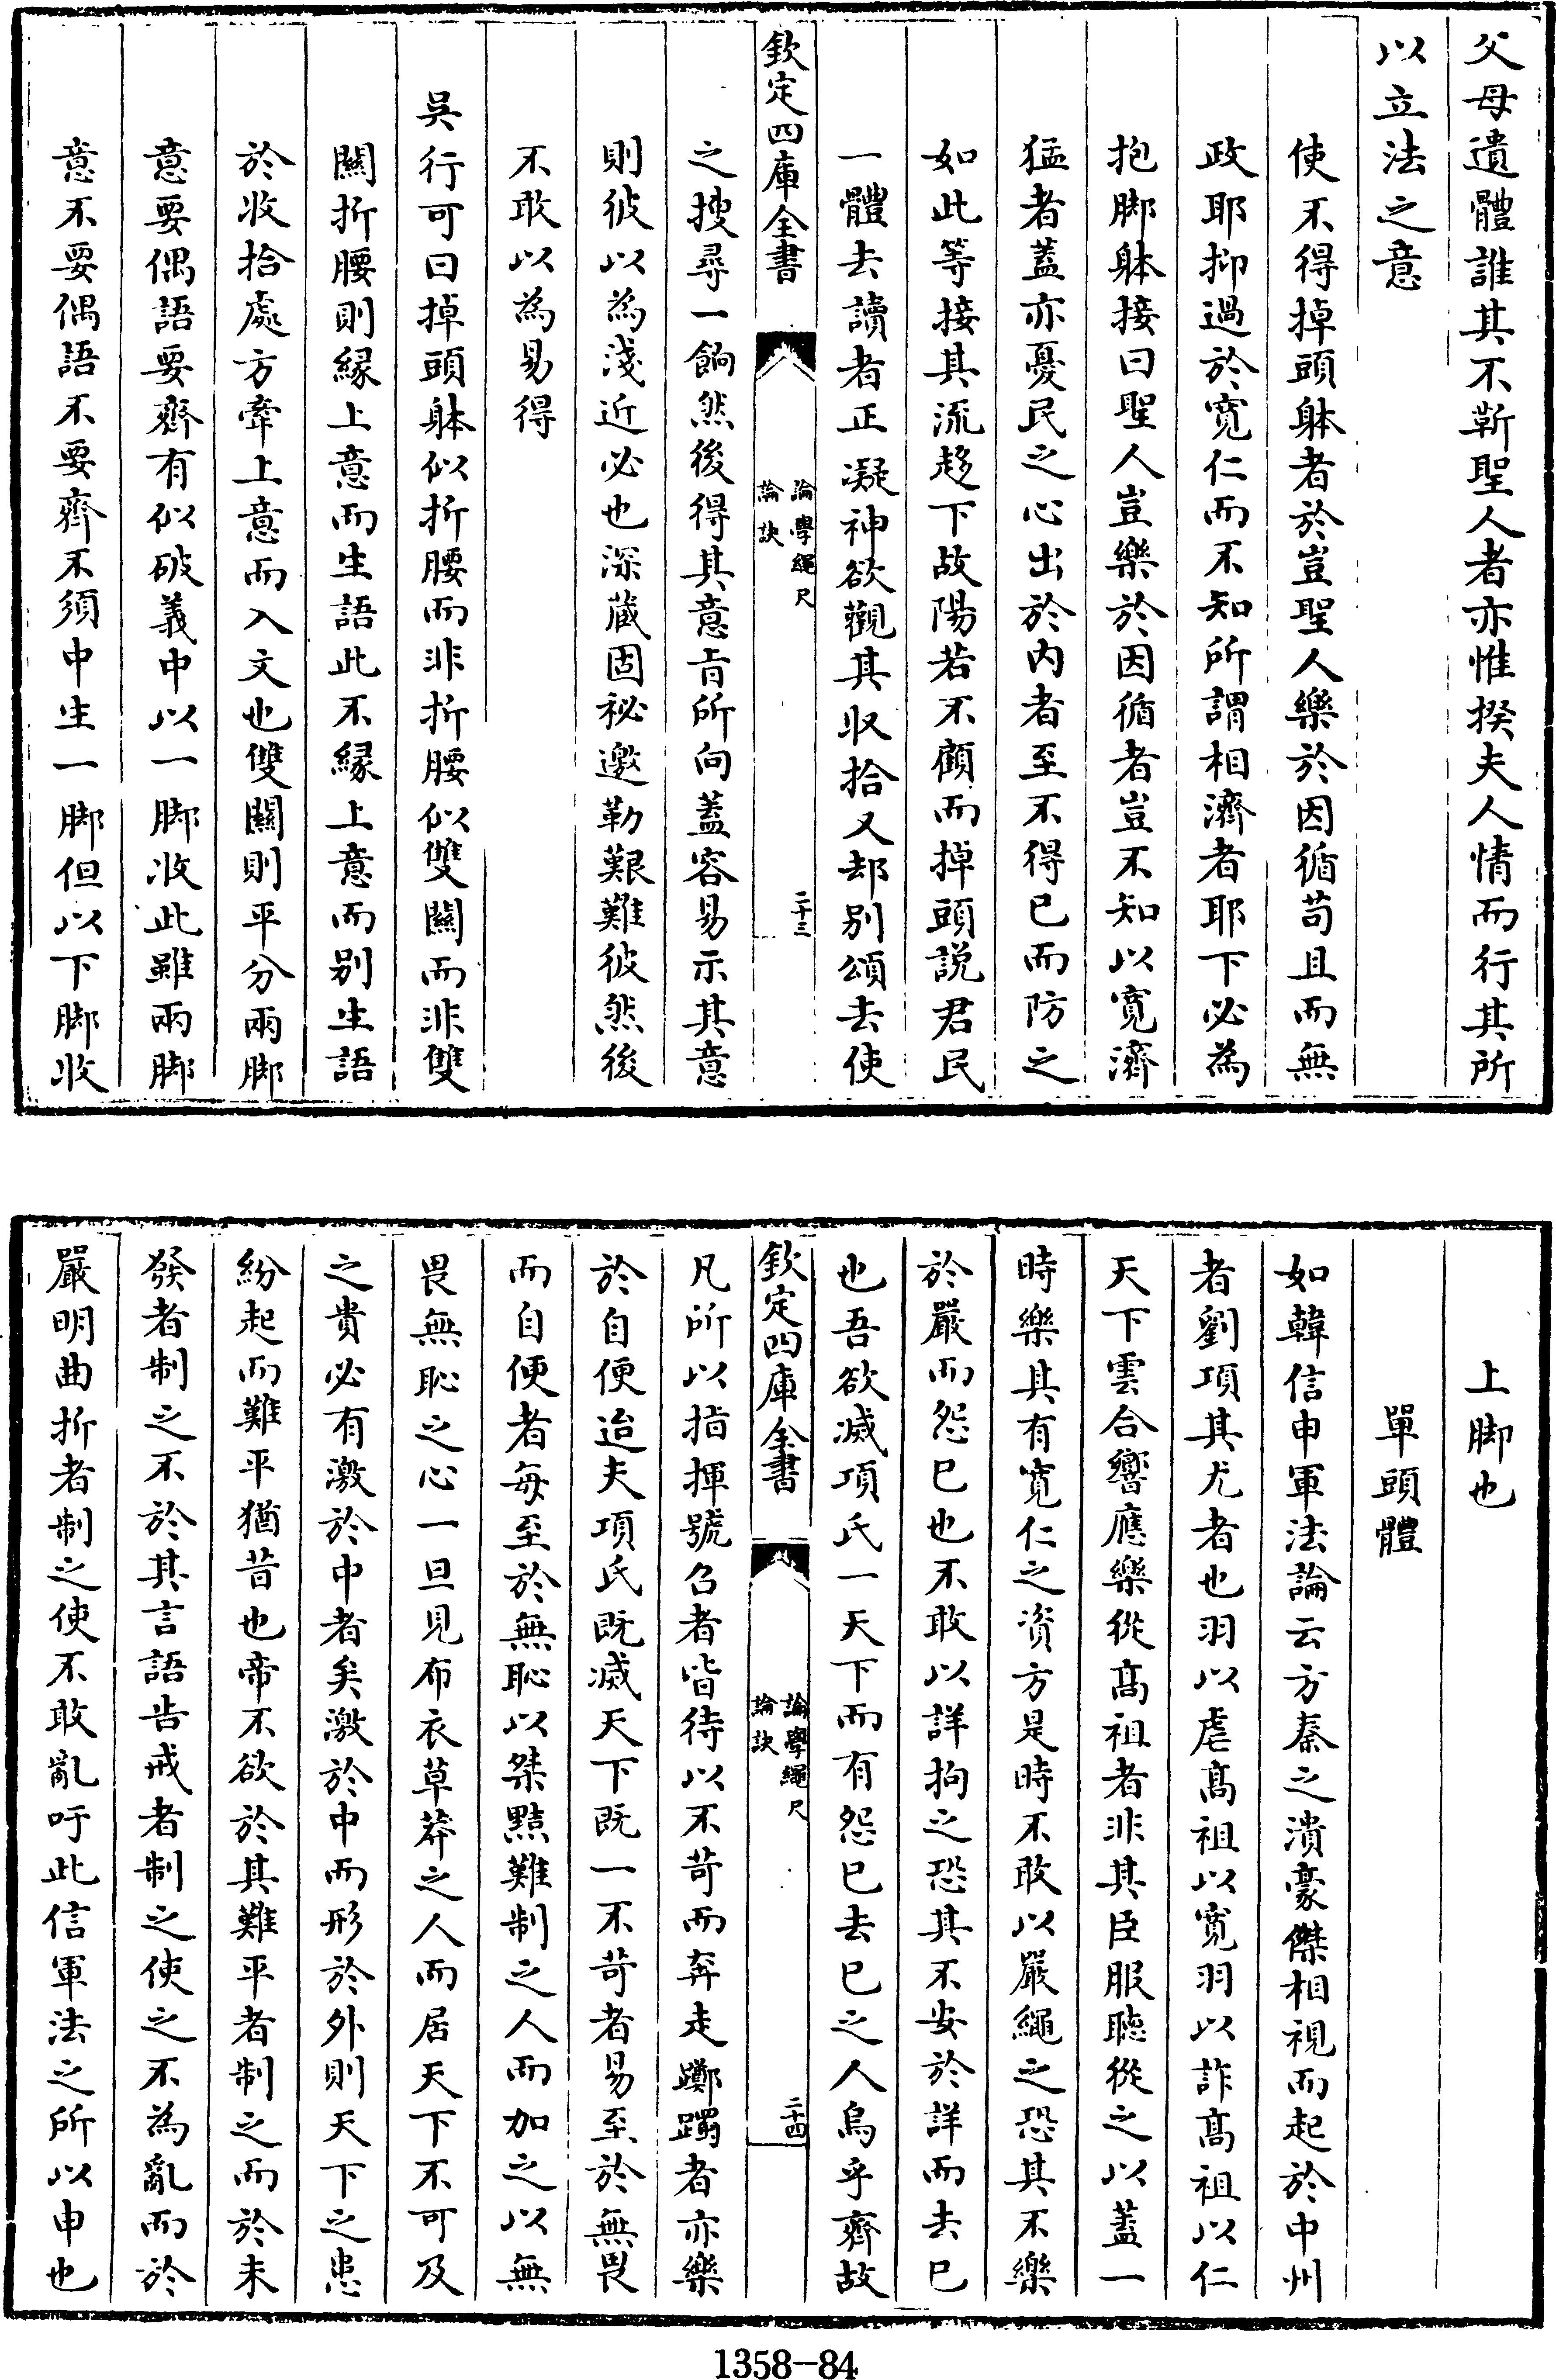 父母遺體誰其不靳聖人者亦惟揆夫人情而行其所
以立法之意
使不得掉頭躰者於豈聖人樂於因循苟且而無
政耶抑過於寛仁而不知所謂相濟者耶下必為
抱脚躰接曰聖人豈樂於因循者豈不知以寛濟
猛者蓋亦憂民之心出於内者至不得已而防之
如此等接其流趍下故陽若不顧而掉頭説君民
一體去讀者正凝神欲觀其收拾又却别頌去使
欽定四庫全書
論學繩尺
論訣
二十三
之搜尋一餉然後得其意㫖所向蓋容易示其意
則彼以為淺近必也深藏固祕邀勒艱難彼然後
不敢以為易得
吳行可曰掉頭躰似折腰而非折腰似雙關而非雙
關折腰則縁上意而生語此不縁上意而别生語
於收拾處方牽上意而入文也雙關則平分兩脚
意要偶語要齊有似破義中以一脚收此雖兩脚
意不要偶語不要齊不須中生一脚但以下脚收
上脚也
單頭體
如韓信申軍法論云方秦之潰豪傑相視而起於中州
者劉項其尤者也羽以虐髙祖以寛羽以詐髙祖以仁
天下雲合響應樂從髙祖者非其臣服聽從之以蓋一
時樂其有寛仁之資方是時不敢以嚴繩之恐其不樂
於嚴而怨已也不敢以詳拘之恐其不安於詳而去已
也吾欲滅項氏一天下而有怨已去已之人烏乎齊故
欽定四庫全書
論學繩尺
論訣
二十四
凡所以指揮號召者皆待以不苛而奔走躑躅者亦樂
於自便迨夫項氏既滅天下既一不苛者易至於無畏
而自便者每至於無恥以桀黠難制之人而加之以無
畏無恥之心一旦見布衣草莽之人而居天下不可及
之貴必有激於中者矣激於中而形於外則天下之患
紛起而難平猶昔也帝不欲於其難平者制之而於未
發者制之不於其言語告戒者制之使之不為亂而於
嚴明曲折者制之使不敢亂吁此信軍法之所以申也
1358-84